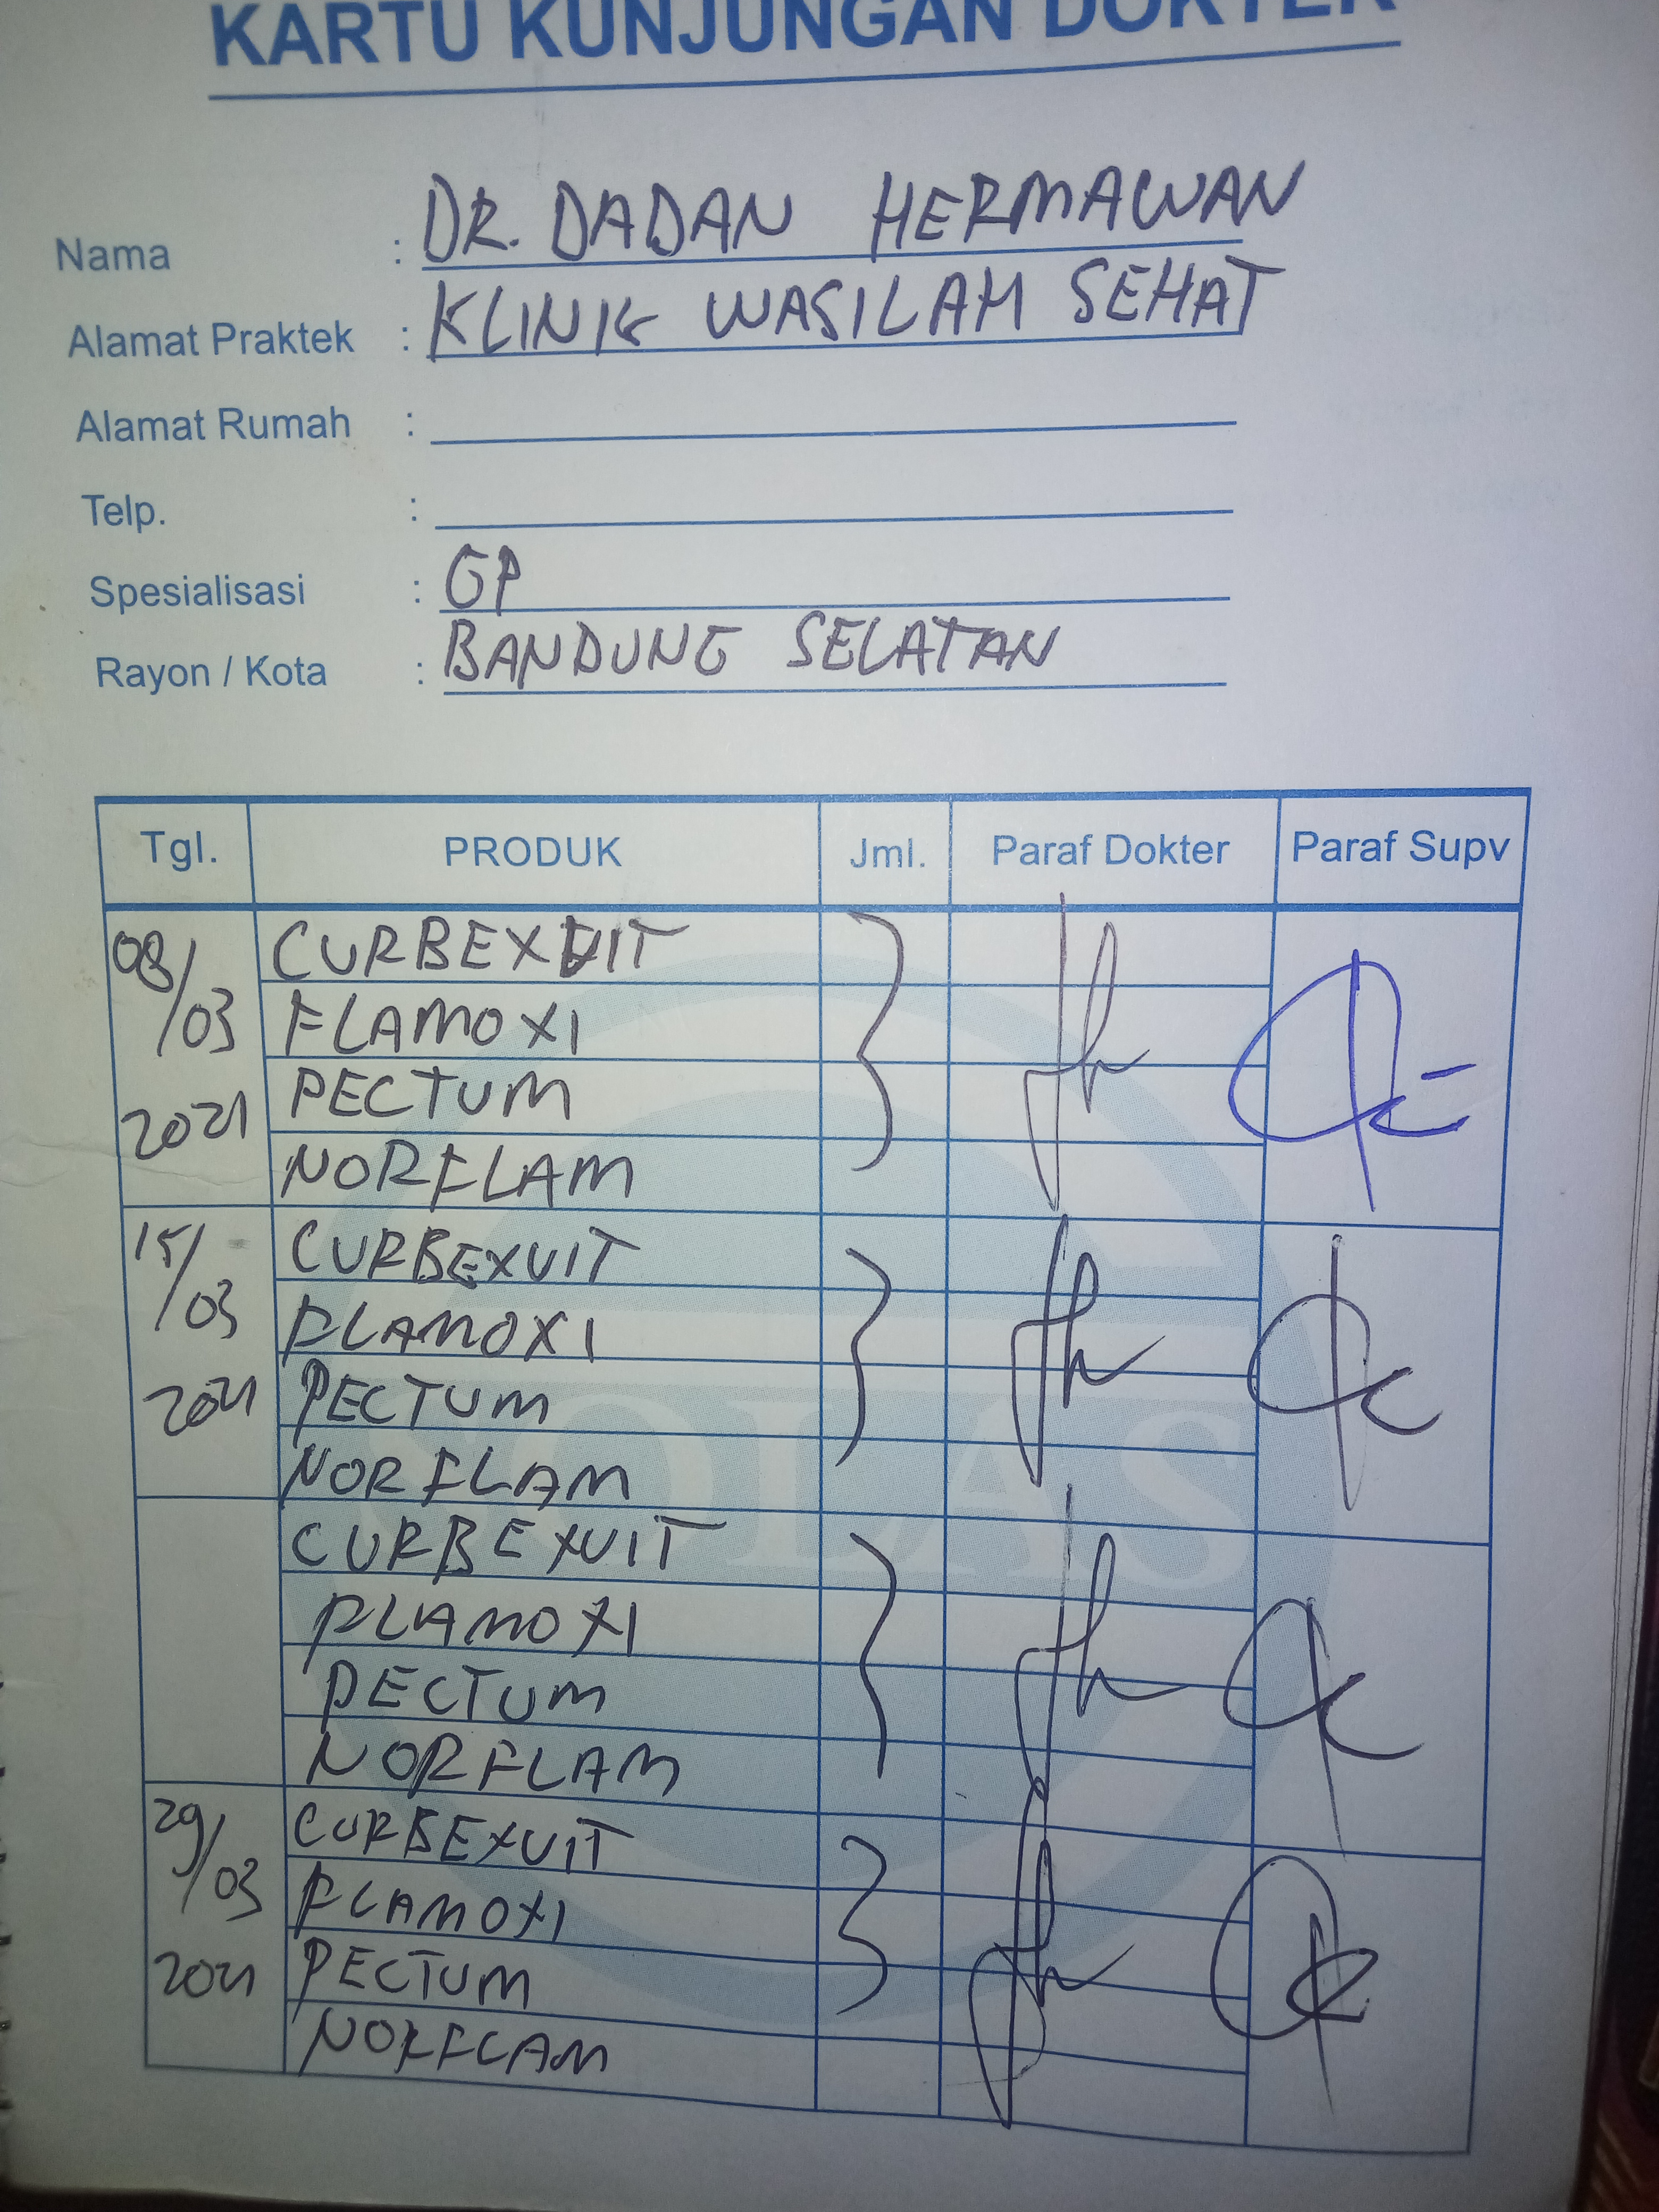 KARTU KUNJUNGAN DOKTER
Nama : DR. DADAN HERMAWAN
Alamat Praktek : KLINIK WASILAH SEHAT
Alamat Rumah :
Telp. :
Spesialisasi : GP
Rayon / Kota : BANDUNG SELATAN
Tgl. PRODUK Jml. Paraf Dokter Paraf Supv
08/03 2021 CURBEXVIT
FLAMOXI
PECTUM
NORFLAM
15/03 2021 CURBEXVIT
FLAMOXI
PECTUM
NORFLAM
CURBEXVIT
FLAMOXI
PECTUM
NORFLAM
29/03 2021 CURBEXVIT
FLAMOXI
PECTUM
NORFLAM
SOLAS